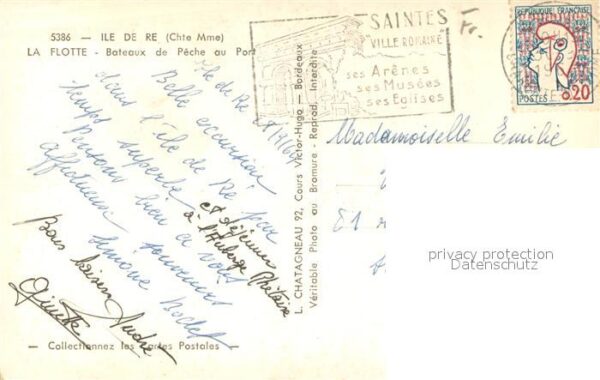 5386 - ILE DE RE (Chte Mme)
LA FLOTTE - Bateaux de Pêche au Port
Ile de Ré
Belle excursion
dans l'île de Ré par
temps superbe
Pensons bien à vous
affectueux souvenirs
Simone
et déjeuner
à l'Auberge Rhétaise
Bons baisers André
Ginette
— Collectionnez les Cartes Postales —
L. CHATAGNEAU 92, Cours Victor-Hugo - Bordeaux
Véritable Photo au Bromure - Reprod. Interdite
SAINTES
"VILLE ROMAINE"
ses Arènes
ses Musées
ses Eglises
Fr.
REPUBLIQUE FRANÇAISE
POSTES 0,20
Mademoiselle Emilie
privacy protection
Datenschutz